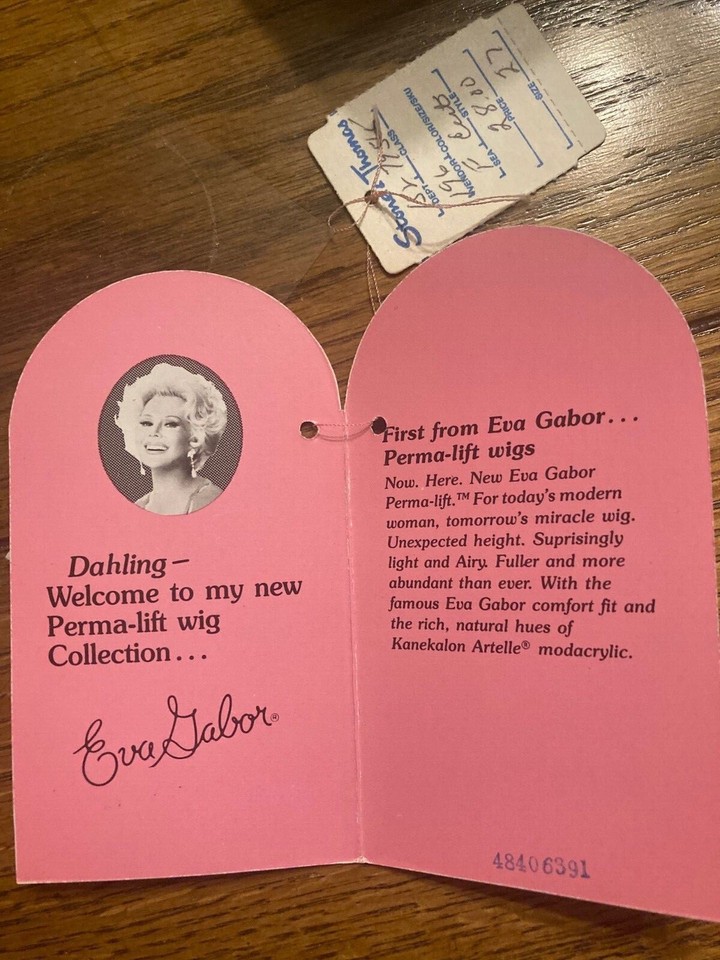 Stone & Thomas
DEPT. CLASS
196
VENDOR COLOR/SIZE/SKU
F
SEA STYLE
28.00
PRICE
27
SIZE
Dahling—
Welcome to my new
Perma-lift wig
Collection...
Eva Gabor®
First from Eva Gabor...
Perma-lift wigs
Now. Here. New Eva Gabor
Perma-lift.™ For today's modern
woman, tomorrow's miracle wig.
Unexpected height. Suprisingly
light and Airy. Fuller and more
abundant than ever. With the
famous Eva Gabor comfort fit and
the rich, natural hues of
Kanekalon Artelle® modacrylic.
48406391